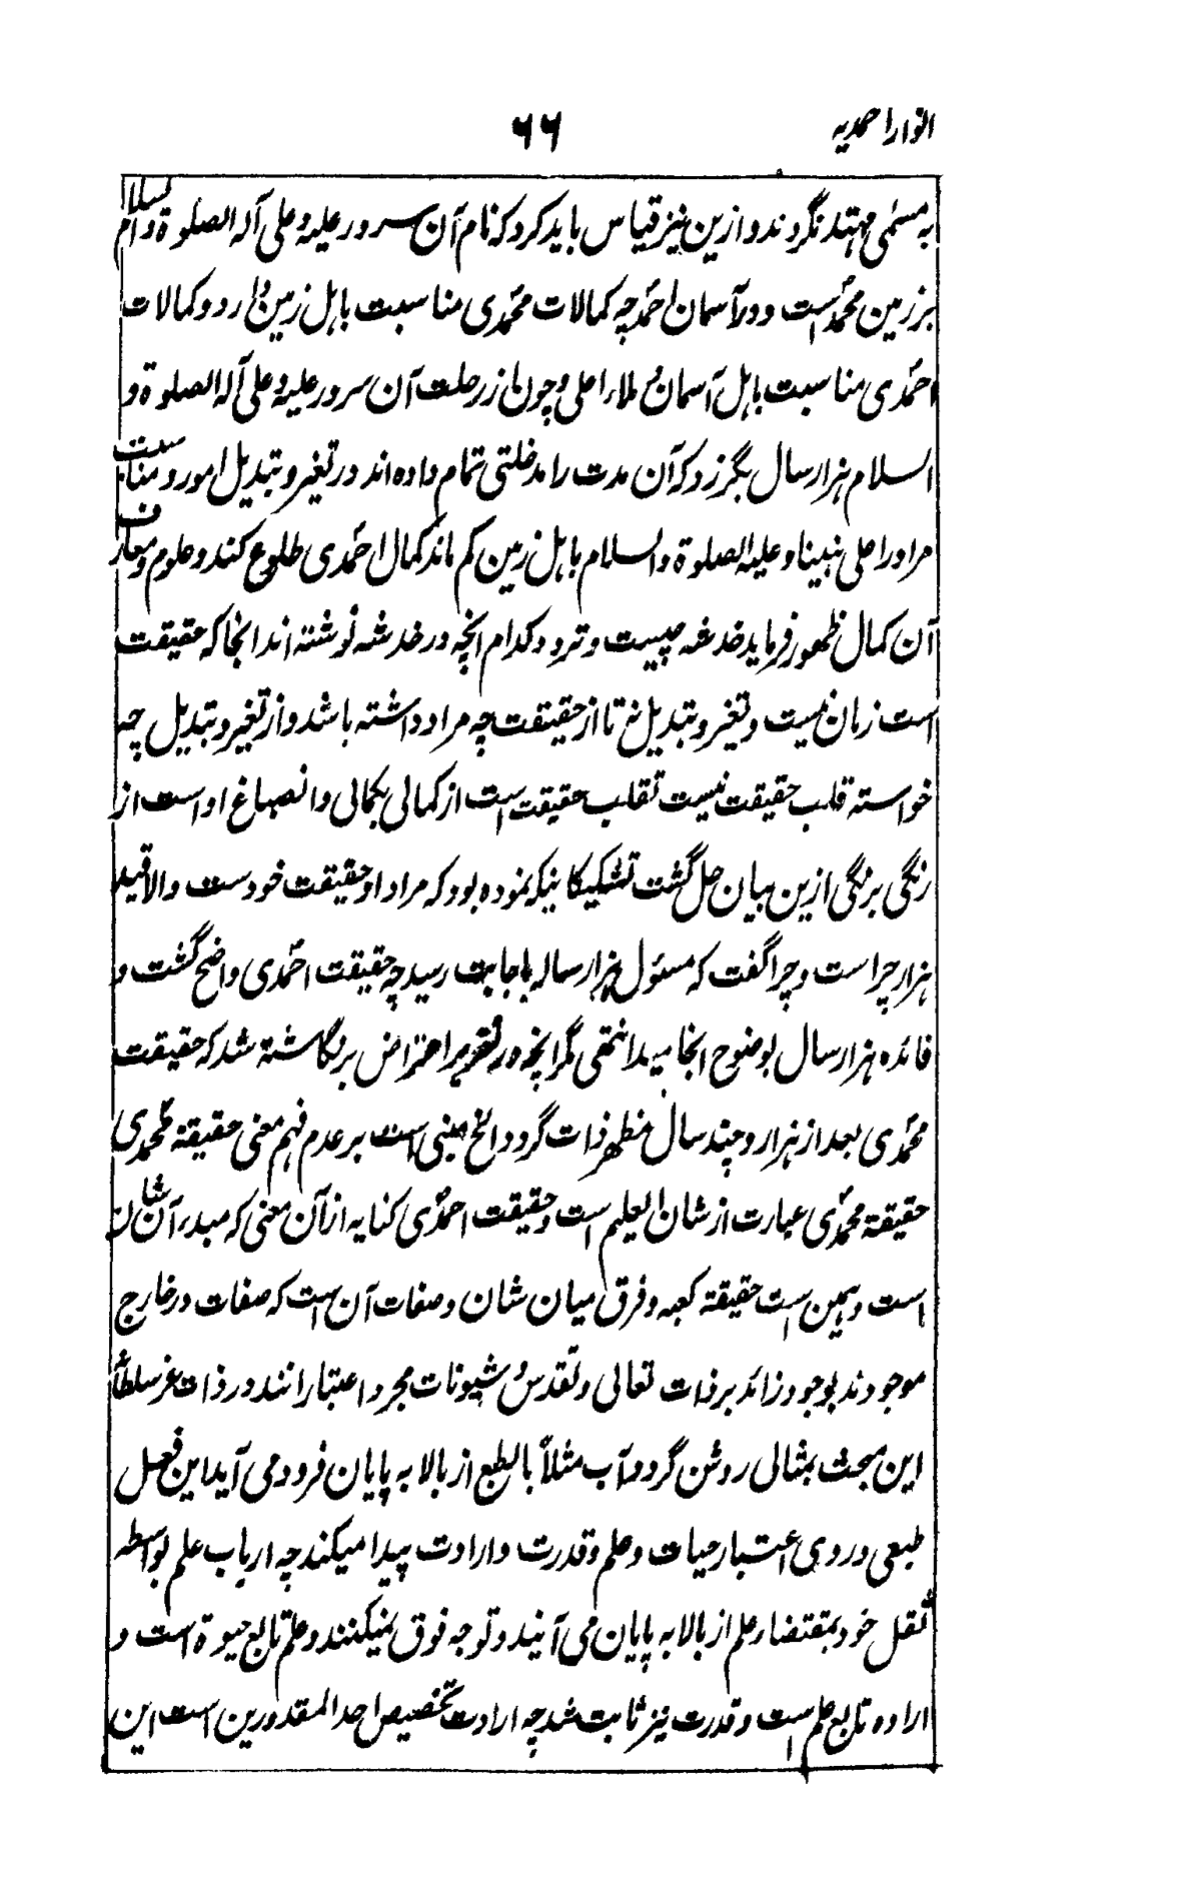 انوار احمدیه
۶۶
به مسمی مهتد نگروند و ازین نیز قیاس باید کرد که نام آن سرور علیه و علی آله الصلوة و السلام
بر زمین محمد است و در آسمان احمد چه کمالات محمدی مناسبت باهل زمین دارد و کمالات
احمدی مناسبت باهل آسمان و ملاء اعلی و چون از رحلت آن سرور علیه و علی آله الصلوة و
السلام هزار سال بگزرد که آن مدت را مدخلتی تمام داده اند در تغیر و تبدیل امور و مناسبت
مر او را علی نبینا و علیه الصلوة والسلام باهل زمین کم ماند کمال احمدی طلوع کند و علوم و معارف
آن کمال ظهور فرماید خدغه چیست و تردد کدام انچه در خدشه نوشته اند انجا که حقیقت
است زمان نیست و تغیر و تبدیل نه تا از حقیقت چه مراد داشته باشد و از تغیر و تبدیل چه
خواسته قلب حقیقت نیست تقلب حقیقت است از کمالی بکمالی و انصباغ او است از
رنگی برنگی ازین بیان حل گشت تشکیکا نیکه نموده بود که مراد او حقیقت خودست والا قید
هزار چرا است و چرا گفت که مسئول هزار ساله باجابت رسید چه حقیقت احمدی واضح گشت و
فائده هزار سال بوضوح انجامید انتهی مگر انچه در تقریر اعتراض برنگاشته شد که حقیقت
محمدی بعد از هزار و چند سال مظهر ذات گردد الخ مبنی است بر عدم فهم معنی حقیقة محمدی
حقیقة محمدی عبارت از شان العلیم است و حقیقت احمدی کنایه از آن معنی که مبدء آن شان
است و همین است حقیقة کعبه و فرق میان شان و صفات آن است که صفات در خارج
موجودند بوجود زائد بر ذات تعالی و تقدس و شیونات مجرد اعتبارانند در ذات عز سلطانه
این مبحث بمثالی روشن گردد آب مثلاً بالطبع از بالا به پایان فرود می آید این فعل
طبعی در وی اعتبار حیات و علم و قدرت و ارادت پیدا میکند چه ارباب علم بواسطه
ثقل خود بمقتضاء علم از بالا به پایان می آنید و توجه فوق نمیکنند و علم تابع حیوة است و
اراده تابع علم است و قدرت نیز ثابت شد چه ارادت تخصیص احد المقدورین است این